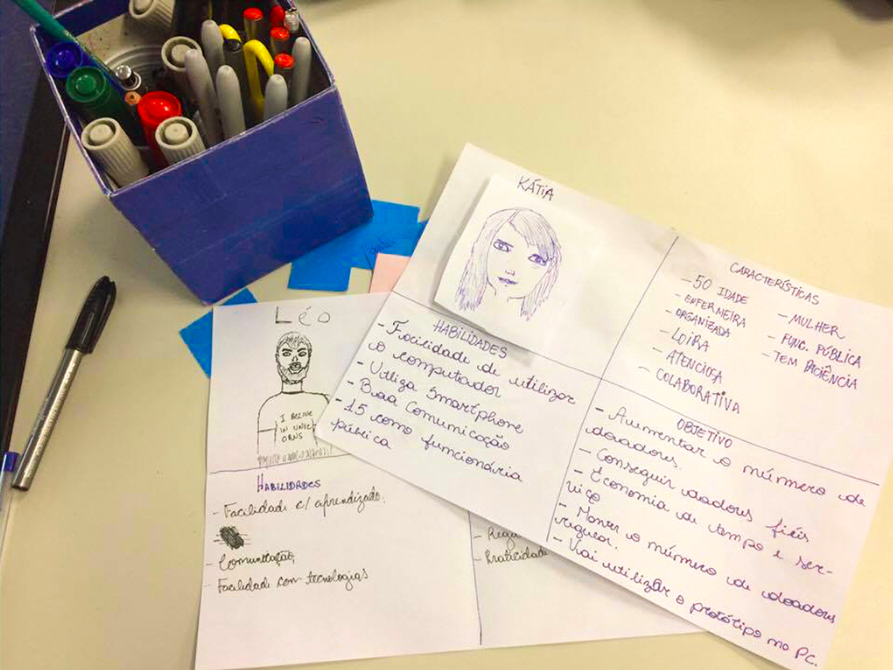 KÁTIA
CARACTERÍSTICAS
- 50 IDADE
- ENFERMEIRA
- ORGANIZADA
- LOIRA
- ATENCIOSA
- COLABORATIVA
- MULHER
- FUNC. PÚBLICA
- TEM DICIÊNCIA
HABILIDADES
- Facilidade de utilizar
o computador
- Utiliza Smartphone
- Boa Comunicação
- 15 como funcionária
pública
OBJETIVO
- Aumentar o número de
doadores.
- Conseguir doadores fiéis
- Economia de tempo e ser-
viço
- Manter o número de doadores
regular.
- Vai utilizar o protótipo no PC.
Léo
I BELIVE
IN UNIC
ORNS
HABILIDADES
- Facilidade c/ aprendizado.
- Comunicação,
- Facilidade com tecnologias
- Praticidade